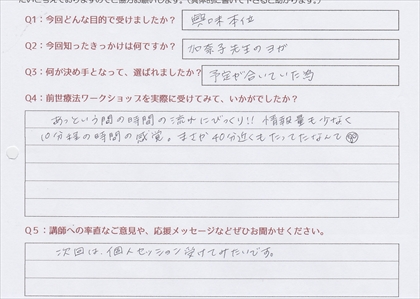 たいと考えておりますのでご協力お願いします。（具体的に書いて下さると助かります。）
Q1：今回どんな目的で受けましたか？ 興味本位
Q2：今回知ったきっかけは何ですか？ 加奈子先生のヨガ
Q3：何が決め手となって、選ばれましたか？ 予定が合いていた為
Q4：前世療法ワークショップを実際に受けてみて、いかがでしたか？
あっという間の時間の流れにびっくり!! 情報量も少なく
10分程の時間の感覚。まさか40分近くもたってたなんて
Q5：講師への率直なご意見や、応援メッセージなどぜひお聞かせください。
次回は、個人セッション受けてみたいです。